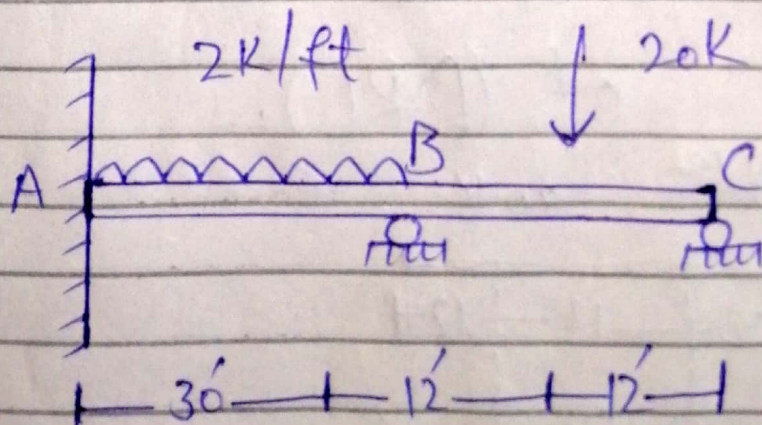 2K/ft 20K
A B C
30' 12' 12'